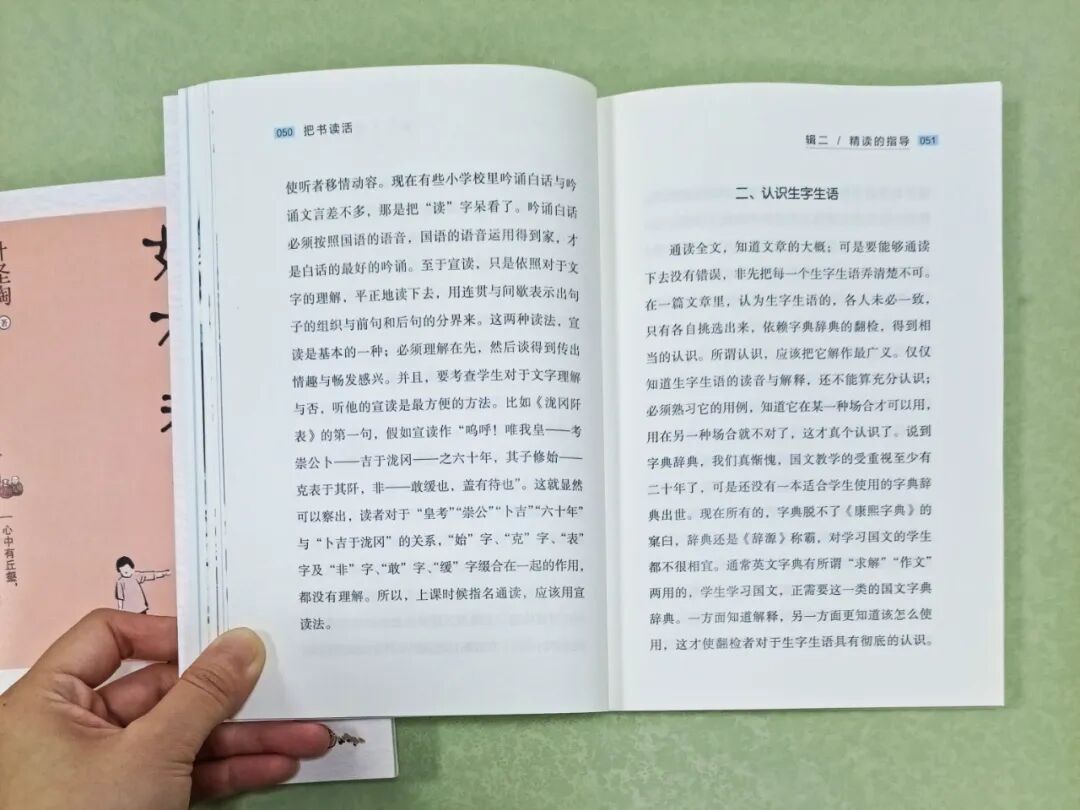 050 把书读活
使听者移情动容。现在有些小学校里吟诵白话与吟
诵文言差不多，那是把“读”字呆看了。吟诵白话
必须按照国语的语音，国语的语音运用得到家，才
是白话的最好的吟诵。至于宣读，只是依照对于文
字的理解，平正地读下去，用连贯与间歇表示出句
子的组织与前句和后句的分界来。这两种读法，宣
读是基本的一种；必须理解在先，然后谈得到传出
情趣与畅发感兴。并且，要考查学生对于文字理解
与否，听他的宣读是最方便的方法。比如《泷冈阡
表》的第一句，假如宣读作“呜呼！唯我皇——考
崇公卜——吉于泷冈——之六十年，其子修始——
克表于其阡，非——敢缓也，盖有待也”。这就显然
可以察出，读者对于“皇考”“崇公”“卜吉”“六十年”
与“卜吉于泷冈”的关系，“始”字、“克”字、“表”
字及“非”字、“敢”字、“缓”字缀合在一起的作用，
都没有理解。所以，上课时候指名通读，应该用宣
读法。
辑二 / 精读的指导 051
二、认识生字生语
通读全文，知道文章的大概；可是要能够通读
下去没有错误，非先把每一个生字生语弄清楚不可。
在一篇文章里，认为生字生语的，各人未必一致，
只有各自挑选出来，依赖字典辞典的翻检，得到相
当的认识。所谓认识，应该把它解作最广义。仅仅
知道生字生语的读音与解释，还不能算充分认识；
必须熟习它的用例，知道它在某一种场合才可以用，
用在另一种场合就不对了，这才真个认识了。说到
字典辞典，我们真惭愧，国文教学的受重视至少有
二十年了，可是还没有一本适合学生使用的字典辞
典出世。现在所有的，字典脱不了《康熙字典》的
窠臼，辞典还是《辞源》称霸，对学习国文的学生
都不很相宜。通常英文字典有所谓“求解”“作文”
两用的，学生学习国文，正需要这一类的国文字典
辞典。一方面知道解释，另一方面更知道该怎么使
用，这才使翻检者对于生字生语具有彻底的认识。
叶圣陶 著
心中有丘壑，